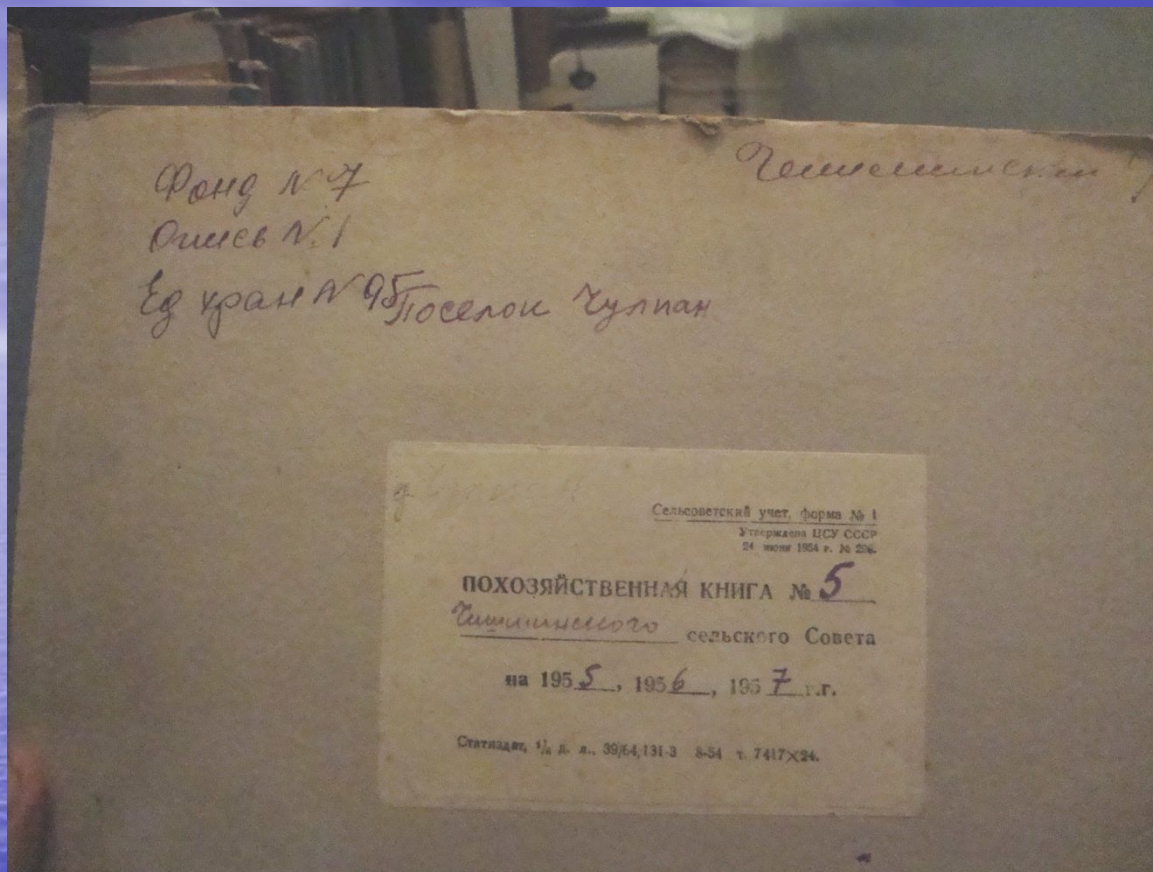 Фонд N 7
Опись N. 1
Ед хран N 95 Поселок Чулпан
Сельсоветский учет, форма № 1
Утверждена ЦСУ СССР
24 июня 1954 г. № 296.
ПОХОЗЯЙСТВЕННАЯ КНИГА № 5
Чишминского сельского Совета
на 1955, 1956, 1957 г.г.
Статиздат, 1/8 д. л., 39/64,131-3 8-54 т. 7417×24.